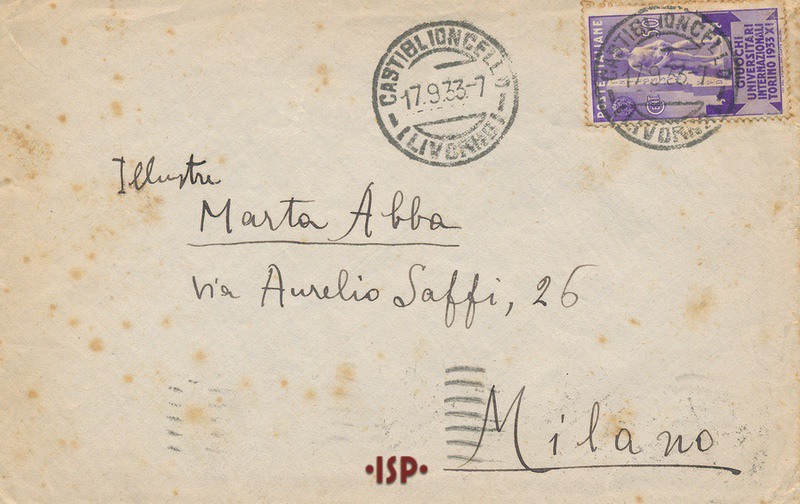 CASTIGLIONCELLO
17.9.33-7
(LIVORNO)
POSTE ITALIANE
50
GIUOCHI
UNIVERSITARI
INTERNAZIONALI
TORINO 1933 XI
CASTIGLIONCELLO
17.9.33-7
(LIVORNO)
Illustre
Marta Abba
via Aurelio Saffi, 26
Milano
·ISP·